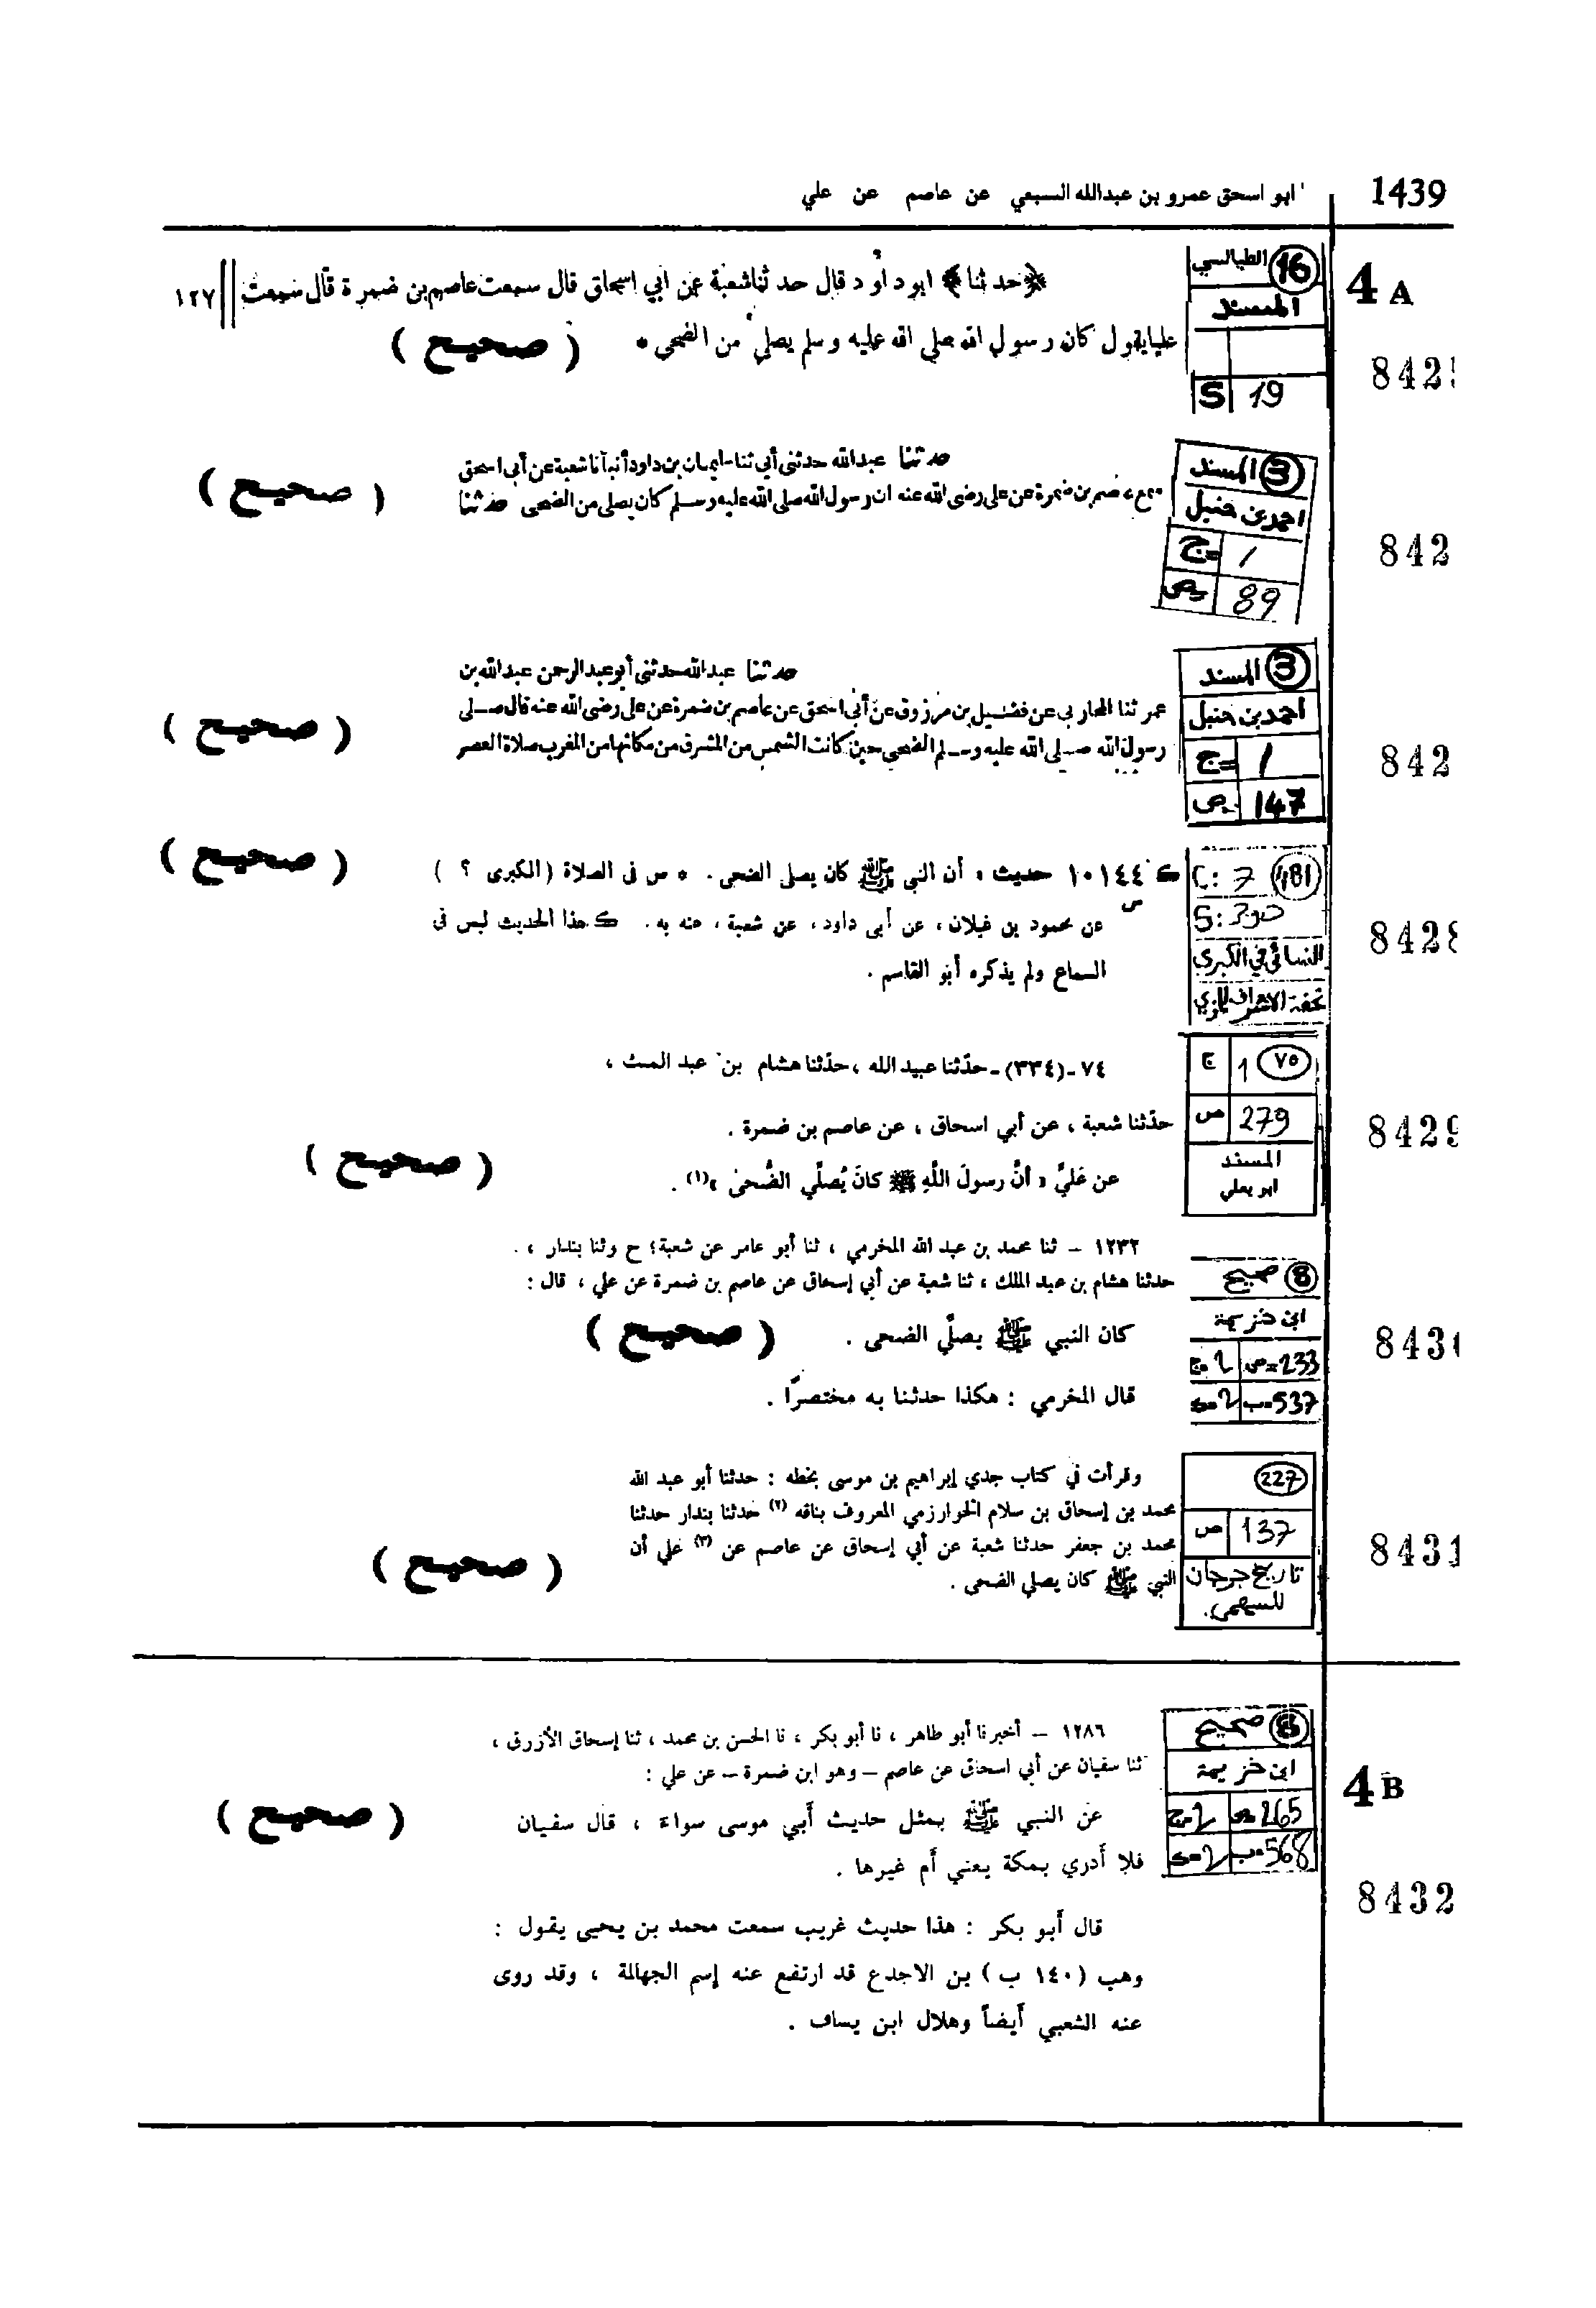 1439
ابو اسحق عمرو بن عبدالله السبعي عن عاصم عن علي
4 A
16 الطيالسي
المسند
S 19
﴿حدثنا﴾ ابو داؤد قال حدثنا شعبة عن ابي اسحاق قال سمعت عاصم بن ضمرة قال سمعت || ١٢٧
عليا يقول كان رسول الله صلى الله عليه وسلم يصلي من الضحى * ( صحيح )
842
3 المسند
احمد بن حنبل
ج= 1
ص= 89
حدثنا عبدالله حدثني أبي ثنا سليمان بن داود أنبأنا شعبة عن أبي اسحق
سمع عاصم بن ضمرة عن على رضى الله عنه ان رسول الله صلى الله عليه وسلم كان يصلى من الضحى حدثنا
( صحيح )
842
3 المسند
احمد بن حنبل
ج= 1
ص 147
حدثنا عبدالله حدثنى أبو عبدالرحمن عبدالله بن
عمر ثنا المحاربي عن فضيل بن مرزوق عن أبي اسحق عن عاصم بن ضمرة عن على رضى الله عنه قال صلى
رسول الله صلى الله عليه وسلم الضحى حين كانت الشمس من المشرق من مكانها من المغرب صلاة العصر
( صحيح )
842
481 C: 7
S: 390
النسائي في الكبرى
تحفة الاشراف للمزي
ك ١٠١٤٤ حديث : أن النبي ﷺ كان يصلى الضحى . * س فى الصلاة ( الكبرى ؟ )
س
عن محمود بن غيلان ، عن أبى داود ، عن شعبة ، عنه به . ك هذا الحديث ليس فى
السماع ولم يذكره أبو القاسم .
( صحيح )
8428
٧٥ 1 ج
279 ص
المسند
ابو يعلي
٧٤-(٣٣٤)- حدّثنا عبيد الله ، حدّثنا هشام بن عبد الملك ،
حدّثنا شعبة ، عن أبي اسحاق ، عن عاصم بن ضمرة .
عن عَليٍّ « أنَّ رسولَ اللَّهِ ﷺ كانَ يُصلِّي الضُّحىٰ »(١) .
( صحيح )
8429
8 صحيح
ابن خزيمة
ص=233 ج=2
ب=537 ك=2
١٢٣٢ – ثنا محمد بن عبد الله المخرمي ، ثنا أبو عامر عن شعبة؛ ح وثنا بندار ، .
حدثنا هشام بن عبد الملك ، ثنا شعبة عن أبي إسحاق عن عاصم بن ضمرة عن علي ، قال :
كان النبي ﷺ يصلّي الضحى . ( صحيح )
قال المخرمي : هكذا حدثنا به مختصرًا .
843
227
137 ص
تاريخ جرجان
للسهمي.
وقرأت في كتاب جدي إبراهيم بن موسى بخطه : حدثنا أبو عبد الله
محمد بن إسحاق بن سلام الخوارزمي المعروف بناقه (٢) حدثنا بندار حدثنا
محمد بن جعفر حدثنا شعبة عن أبي إسحاق عن عاصم عن (٣) علي أن
النبي ﷺ كان يصلي الضحى .
( صحيح )
8431
4 B
8 صحيح
ابن خزيمة
ص=265 ج=2
ب=568 ك=2
١٢٨٦ – أخبرنا أبو طاهر ، نا أبو بكر ، نا الحسن بن محمد ، ثنا إسحاق الأزرق ،
ثنا سفيان عن أبي اسحاق عن عاصم – وهو ابن ضمرة – عن علي :
عن النبي ﷺ بمثل حديث أبي موسى سواءَ ، قال سفيان
فلا أَدري بمكة يعني أَم غيرها .
( صحيح )
8432
قال أَبو بكر : هذا حديث غريب سمعت محمد بن يحيى يقول :
وهب (١٤٠ ب) بن الاجدع قد ارتفع عنه إسم الجهالة ، وقد روى
عنه الشعبي أَيضاً وهلال ابن يساف .